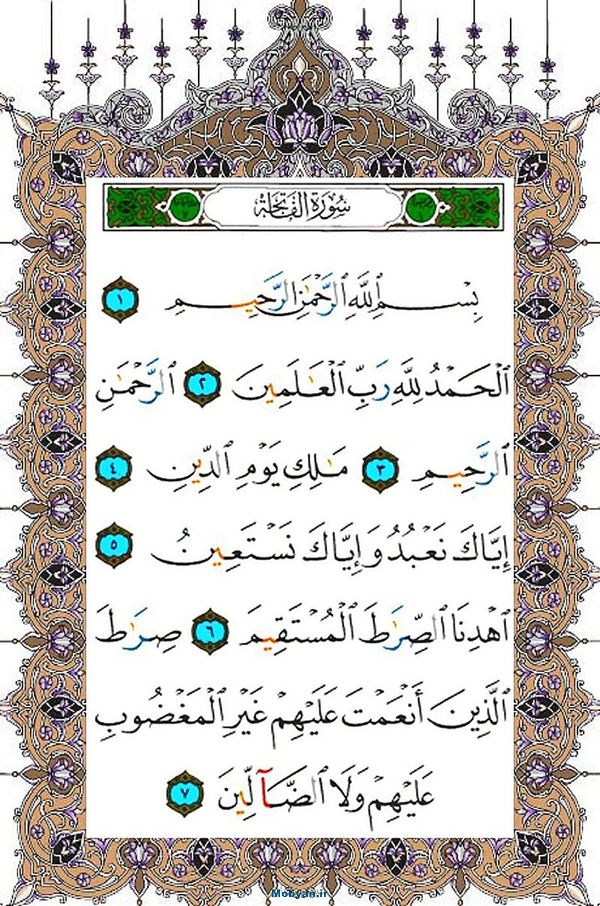 سورة الفاتحة
بِسْمِ ٱللَّهِ ٱلرَّحْمَٰنِ ٱلرَّحِيمِ ١
ٱلْحَمْدُ لِلَّهِ رَبِّ ٱلْعَٰلَمِينَ ٢ ٱلرَّحْمَٰنِ
ٱلرَّحِيمِ ٣ مَٰلِكِ يَوْمِ ٱلدِّينِ ٤
إِيَّاكَ نَعْبُدُ وَإِيَّاكَ نَسْتَعِينُ ٥
ٱهْدِنَا ٱلصِّرَٰطَ ٱلْمُسْتَقِيمَ ٦ صِرَٰطَ
ٱلَّذِينَ أَنْعَمْتَ عَلَيْهِمْ غَيْرِ ٱلْمَغْضُوبِ
عَلَيْهِمْ وَلَا ٱلضَّآلِّينَ ٧
Mobyan.ir